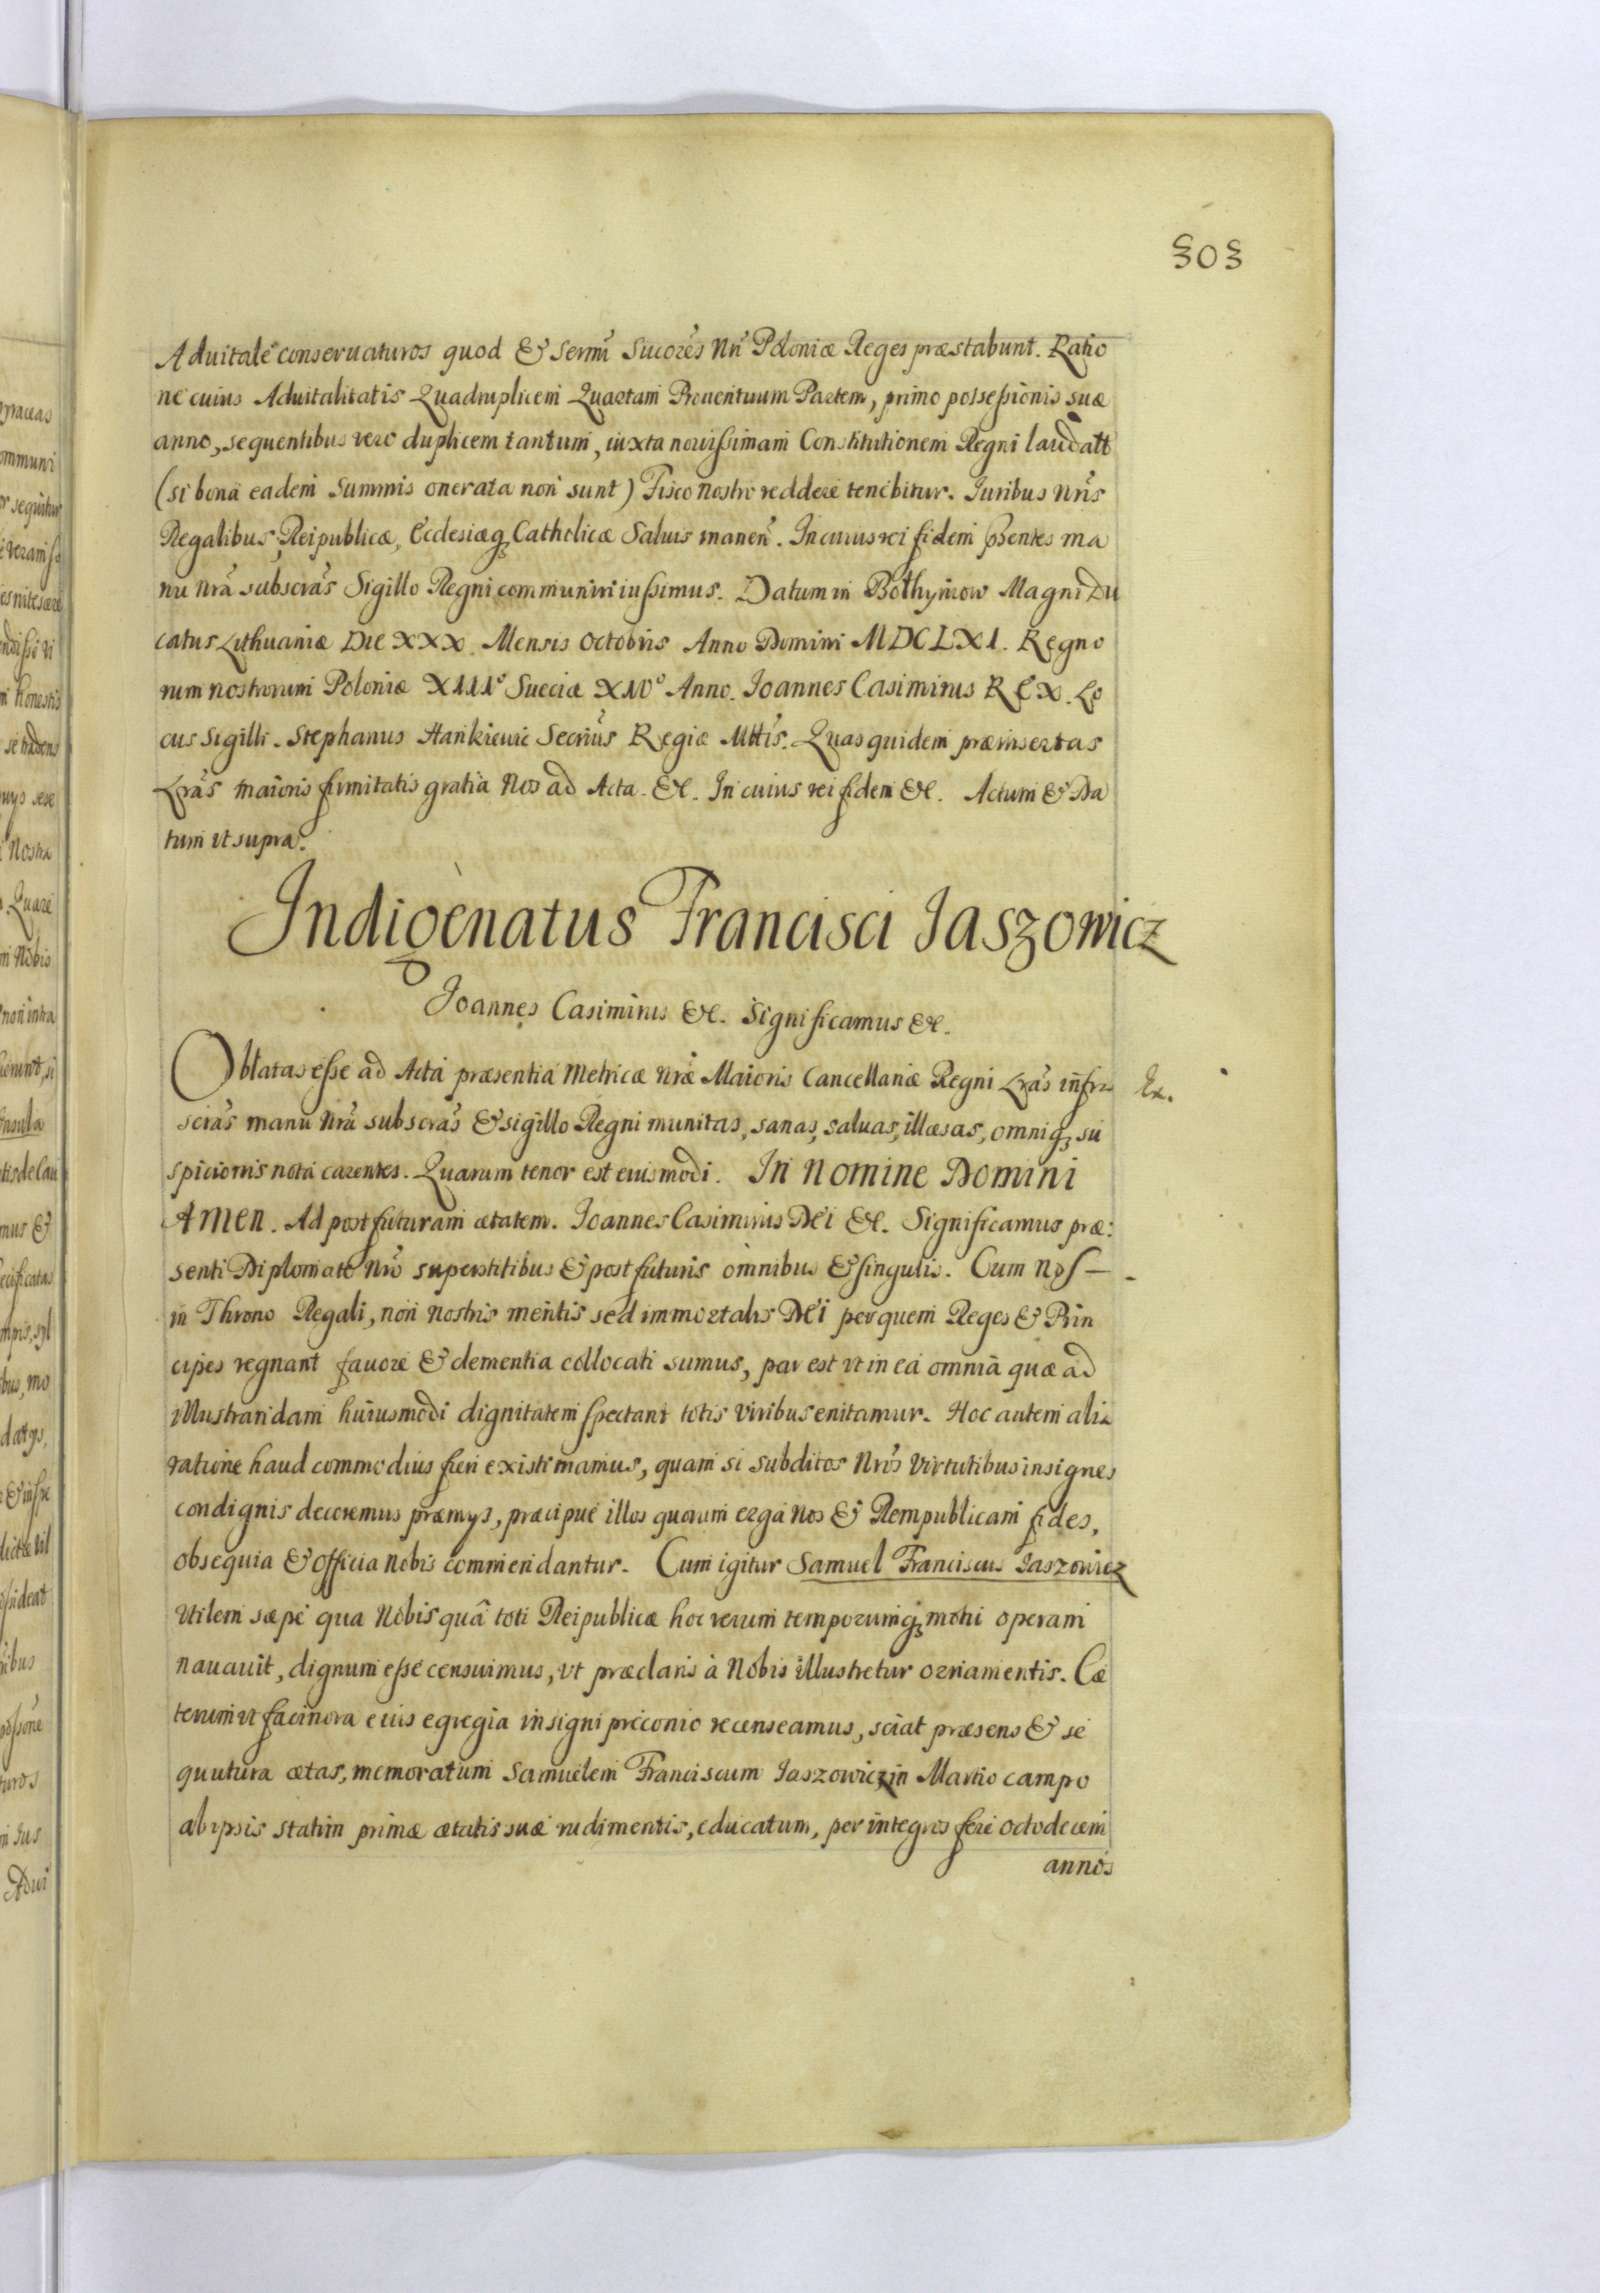 303
Aduitale conseruaturos quod & Sermi Sucores Nri Poloniæ Reges præstabunt. Ratio
ne cuius Aduitalitatis Quadruplicem Quartam Prouentuum Partem, primo possessionis suæ
anno, sequentibus vero duplicem tantum, iuxta nouissimam Constitutionem Regni laudatt
(si bona eadem Summis onerata non sunt) Fisco nostro reddere tenebitur. Iuribus Nris
Regalibus, Reipublicæ, Ecclesiæq Catholicæ Saluis manen. In cuius rei fidem pñtes ma
nu Nra subscras Sigillo Regni communiri iussimus. Datum in Bothyniow Magni Du
catus Lithuaniæ Die XXX. Mensis Octobris Anno Domini MDCLXI. Regno
rum nostrorum Poloniæ XIII° Sueciæ XIV° Anno. Joannes Casimirus REX. Lo
cus Sigilli. Stephanus Hankiewic Secrius Regiæ Mttis. Quas quidem præinsertas
Lras maioris firmitatis gratia Nos ad Acta. &c. In cuius rei fidem &c. Actum & Da
tum vt supra.
Indigenatus Francisci Jaszowicz
Joannes Casimirus &c. Significamus &c.
Oblatas esse ad Acta præsentia Metricæ Nræ Maioris Cancellariæ Regni Lras infra
Ex.
scras manu Nra subscras & sigillo Regni munitas, sanas, saluas, illæsas, omniq su
spicionis nota carentes. Quarum tenor est eiusmodi. In Nomine Domini
Amen. Ad post futuram ætatem. Joannes Casimirus Dei &c. Significamus præ:
senti Diplomate Nro superstitibus & post futuris omnibus & singulis. Cum Nos —
in Throno Regali, non nostris meritis sed immortalis Dei per quem Reges & Prin
cipes regnant fauore & clementia collocati sumus, par est vt in ea omnia quæ ad
illustrandam huiusmodi dignitatem spectant totis viribus enitamur. Hoc autem alia
ratione haud commodius fieri existimamus, quam si subditos Nros Virtutibus insignes
condignis decoremus præmys, præcipue illos quorum erga nos & Rempublicam fides,
obsequia & officia Nobis commendantur. Cum igitur Samuel Franciscus Jaszowicz
Vtilem sæpe qua Nobis quâ toti Reipublicæ hoc rerum temporumq motu operam
nauauit, dignum esse censuimus, vt præclaris à Nobis illustretur ornamentis. Cæ
terum vt facinora eius egregia insigni preconio recenseamus, sciat præsens & se
quutura ætas, memoratum Samuelem Franciscum Jaszowicz in Martio campo
ab ipsis statim primæ ætatis suæ rudimentis, educatum, per integros fere octodecem
annos